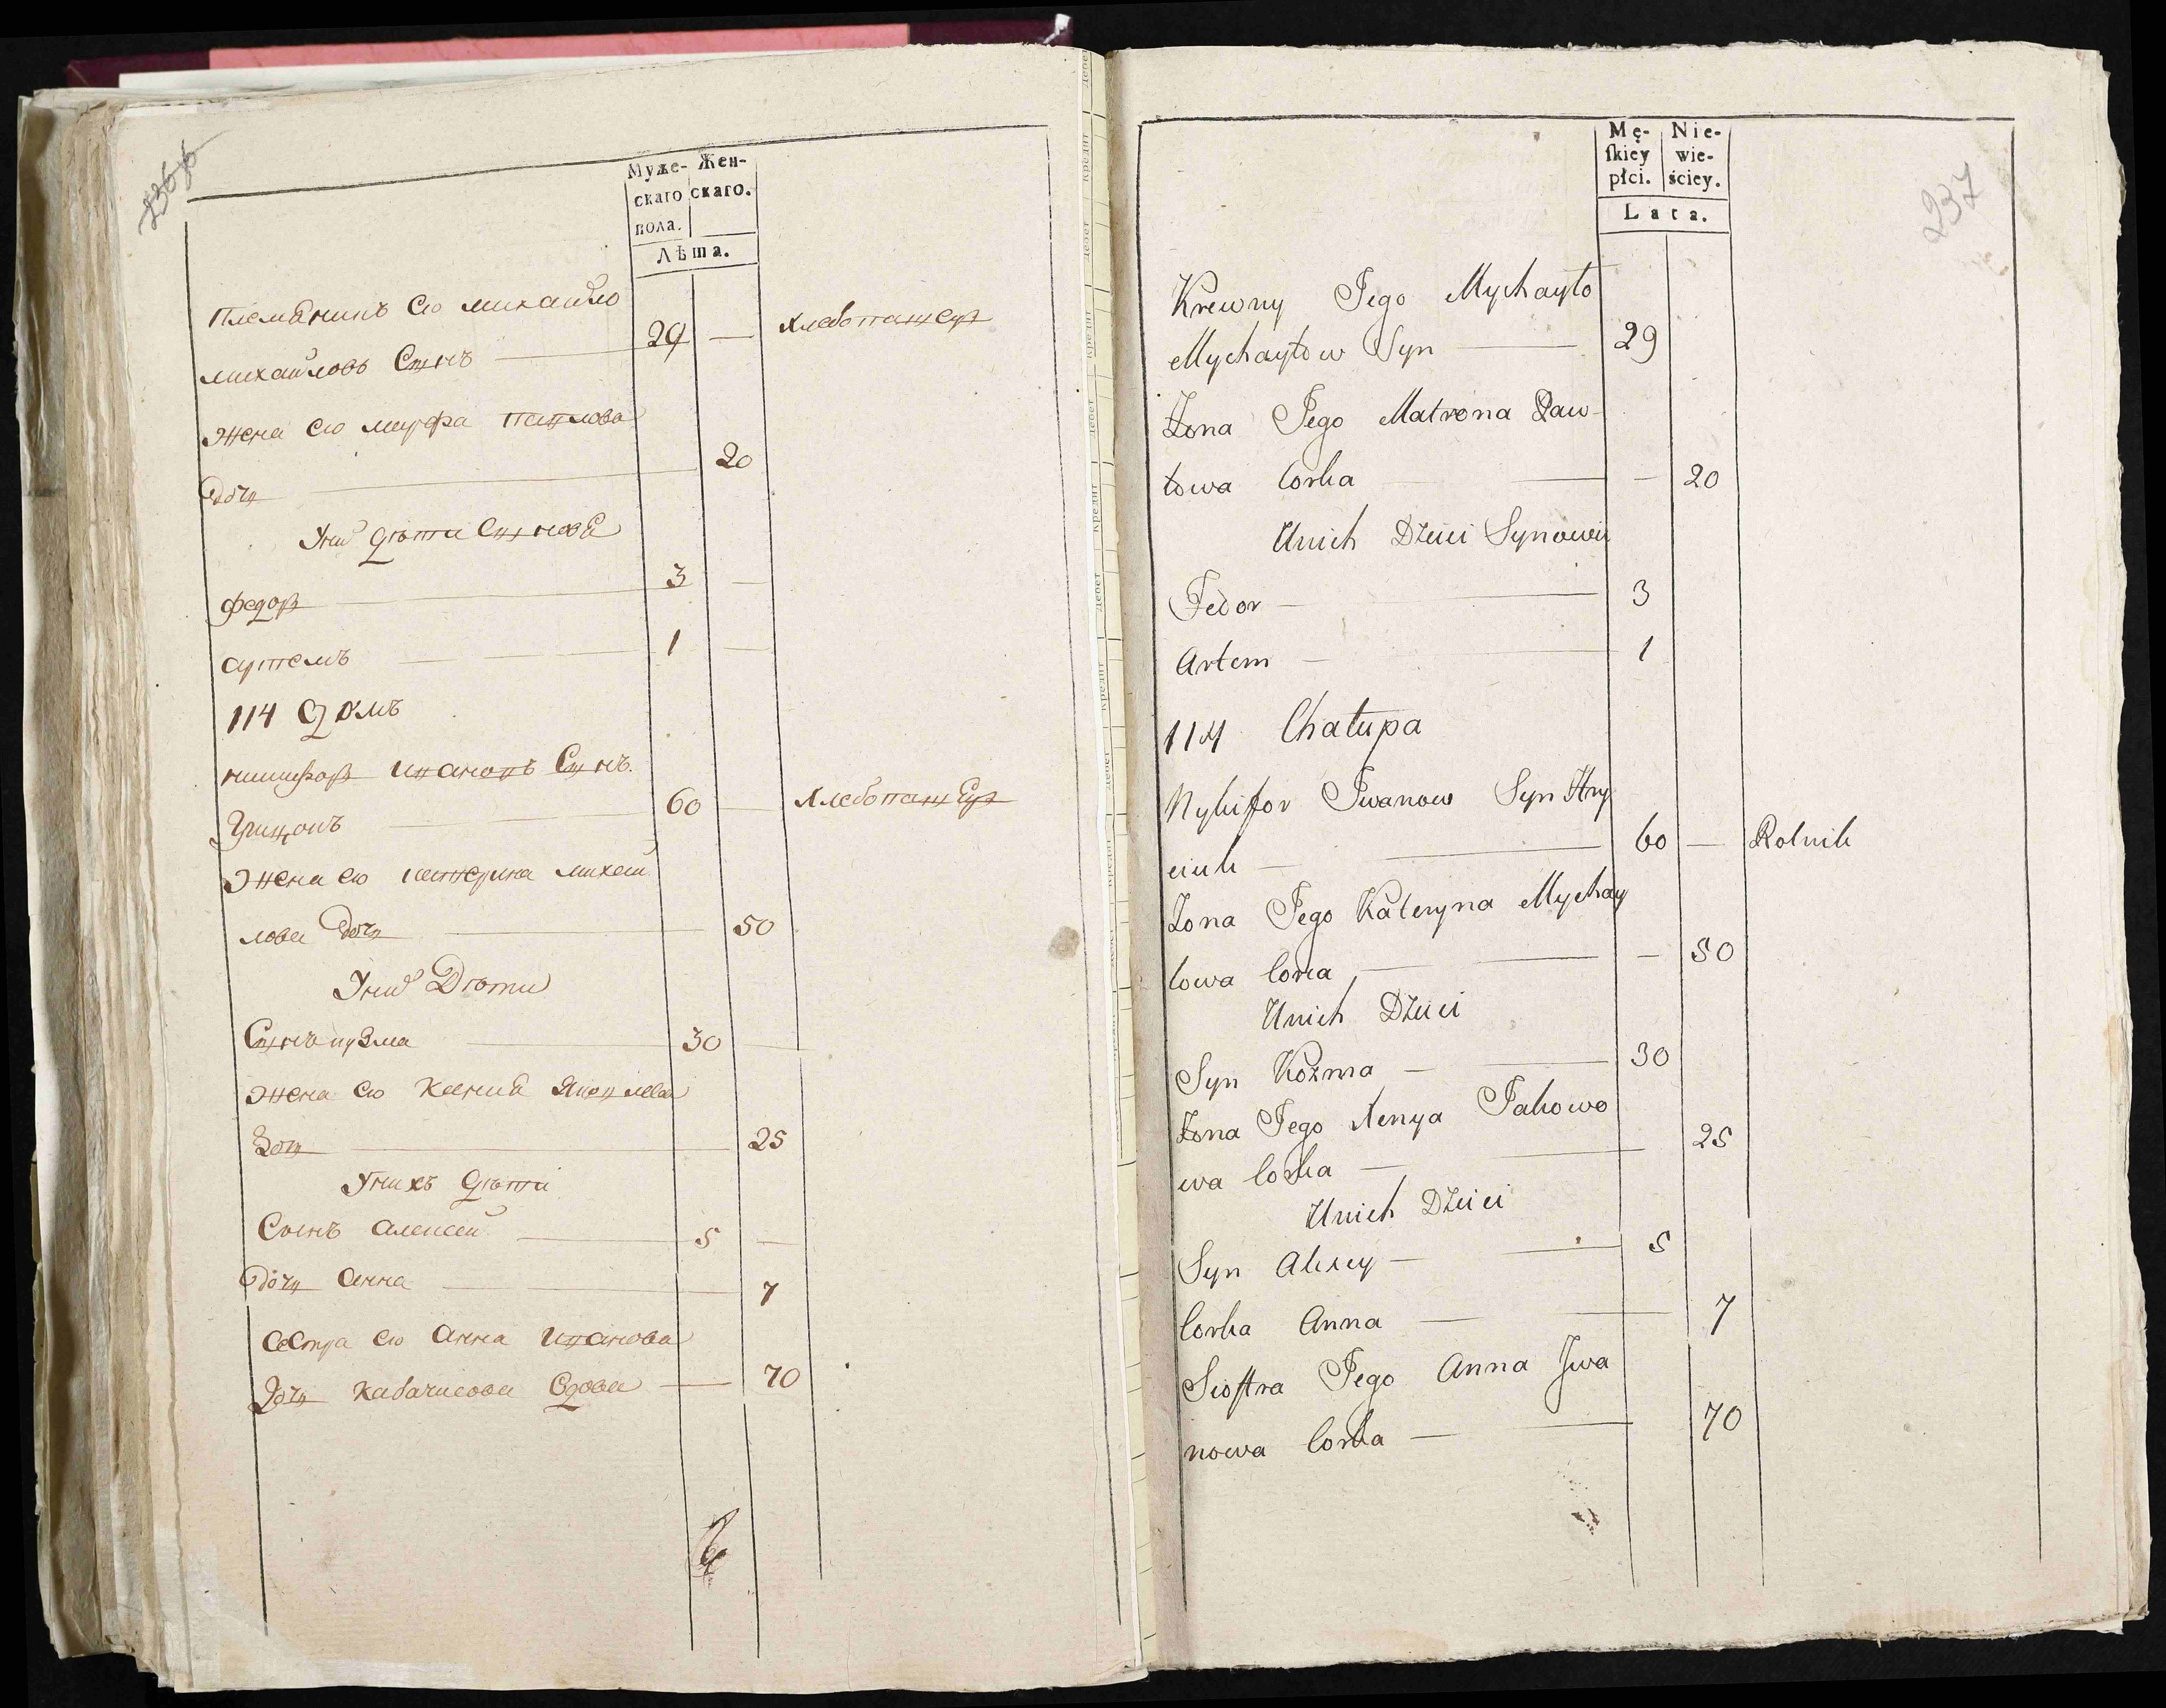 236 об
Муже-
скаго
пола.
Жен-
скаго.
Лѣта.
Племяникъ Его михайло
михайловъ Сынъ — 29 — хлебопашецъ
жена его марфа павлова
дочь — 20
У них дѣти Сыновя
федоръ — 3 —
артемъ — 1 —
114 домъ
никифоръ ивановъ Сынъ
Грицюкъ — 60 — хлебопашецъ
жена его катерина михай
лова дочь — 50
У них Дѣти
Сынъ кузма — 30 —
жена его Ксения Яковлева
дочь — 25
У нихъ дѣти
Сынъ алексей — 5 —
дочь анна — 7
сестра его анна иванова
дочь вдова — 70
237
Mę-
ſkiey
płci.
Nie-
wie-
ściey.
Lata.
Krewny Jego Mychayło
Mychayłow Syn — 29
Żona Jego Matrona Paw-
łowa Corka — — 20
Unich Dzieci Synowie
Fedor — 3
Artem — 1
114 Chałupa
Nykifor Iwanow Syn Hry
ciuk — 60 — Rolnik
Żona Jego Kateryna Mychay
lowa Corka — — 50
Unich Dzieci
Syn Kozma — 30
Żona Jego Xenya Jakowo
wa Corka — 25
Unich Dzieci
Syn Alexey — 5
Corka Anna — 7
Sioſtra Jego Anna Iwa
nowa Corka — 70